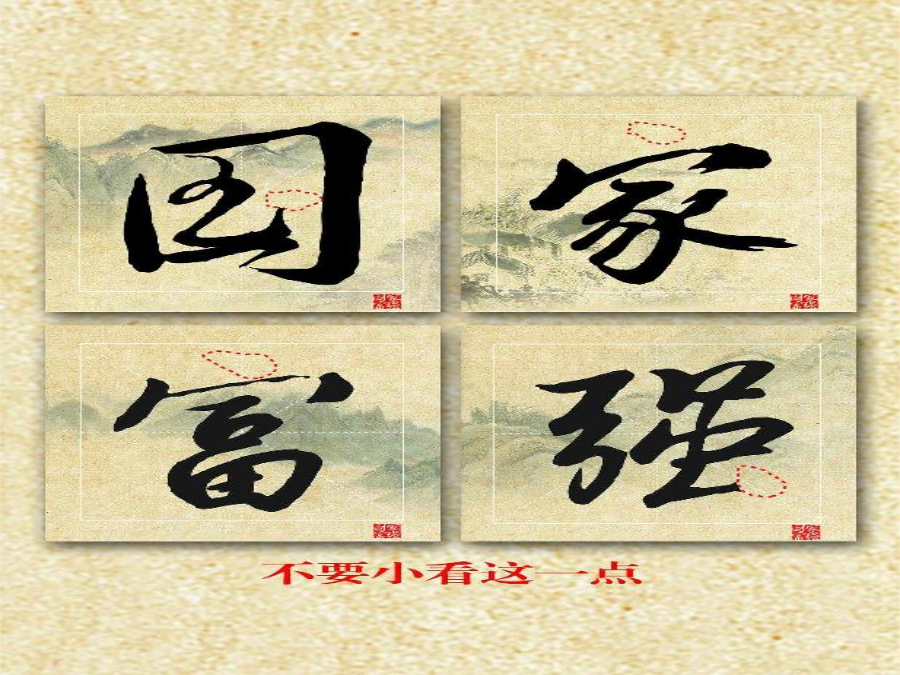 国家
富强
不要小看这一点